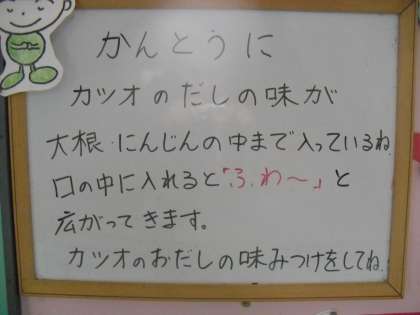 かんとうに
カツオのだしの味が
大根・にんじんの中まで入っているね
口の中に入れると「ふわ〜」と
広がってきます。
カツオのおだしの味みつけをしてね